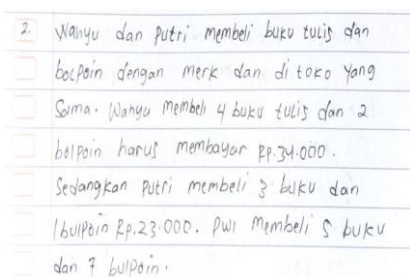 2. Wahyu dan putri membeli buku tulis dan
bolpoin dengan merk dan di toko yang
Sama. Wahyu membeli 4 buku tulis dan 2
bolpoin harus membayar Rp.34.000.
Sedangkan putri membeli 3 buku dan
1 bulpoin Rp.23.000. Dwi membeli 5 buku
dan 7 bulpoin.